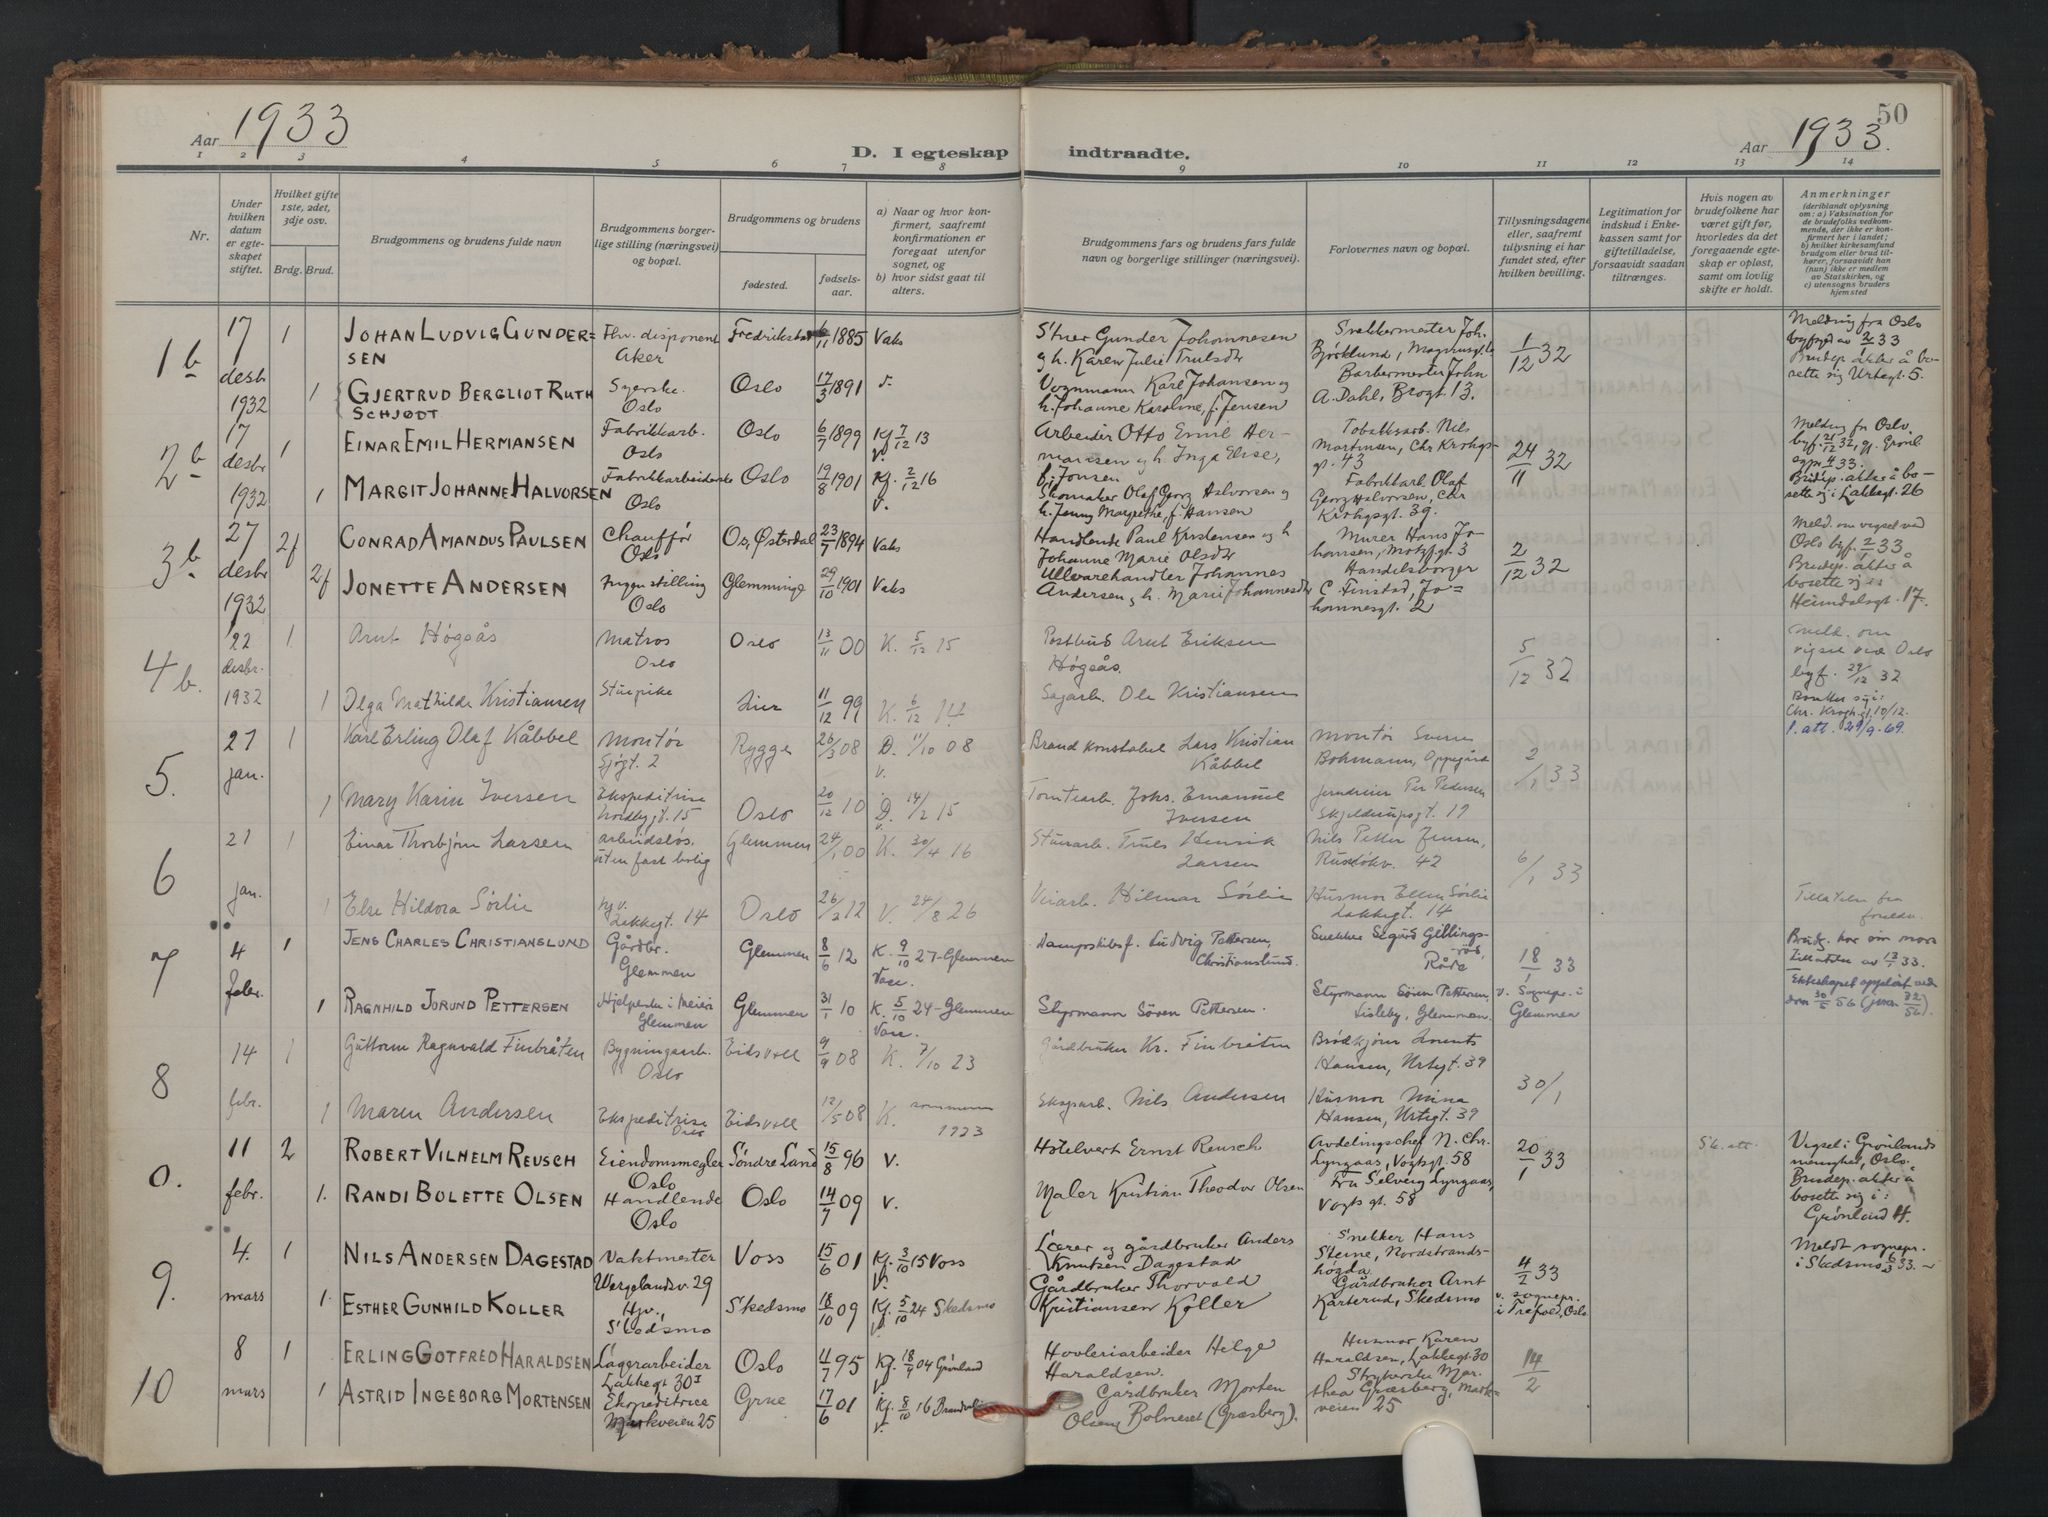 Aar 1933
50
Aar 1933.
D. I egteskap indtraadte.
1 2 3 4 5 6 7 8 9 10 11 12 13 14
Nr.
Under hvilken datum er egteskapet stiftet.
Hvilket gifte 1ste, 2det, 3dje osv.
Brdg. Brud.
Brudgommens og brudens fulde navn
Brudgommens borgerlige stilling (næringsvei) og bopæl.
Brudgommens og brudens
fødested.
fødselsaar.
a) Naar og hvor konfirmert, saafremt konfirmationen er foregaat utenfor sognet, og
b) hvor sidst gaat til alters.
Brudgommens fars og brudens fars fulde navn og borgerlige stillinger (næringsvei).
Forlovernes navn og bopæl.
Tillysningsdagene eller, saafremt tillysning ei har fundet sted, efter hvilken bevilling.
Legitimation for indskud i Enkekassen samt for giftetilladelse, forsaavidt saadan tiltrænges.
Hvis nogen av brudefolkene har været gift før, hvorledes da det foregaaende egteskap er opløst, samt om lovlig skifte er holdt.
Anmerkninger
(deriblandt oplysning om: a) Vaksination for de brudefolks vedkommende, der ikke er konfirmert her i landet;
b) hvilket kirkesamfund brudgom eller brud tilhører, forsaavidt han (hun) ikke er medlem av Statskirken, og
c) utensogns bruders hjemsted
1 b 17 desbr 1932
1 JOHAN LUDVIG GUNDERSEN Fhv. disponent Aker Fredrikstad 6/11 1885 Vaks
Gunder Johannesen og h. Karen Julie Trulsdtr
Snekkermester Joh. Bjørklund,
1/12 32
Melding fra Oslo byfogd av 2/2 33
Brudep. akter å bosette sig Urtegt 5.
1 GJERTRUD BERGLIOT RUTH SCHJØDT Syerske. Oslo Oslo 17/3 1891
Vognmann Karl Johansen og h. Johanne Karoline, f. Jensen
Barbermester John A. Dahl, Brogt. 13.
2 b 17 desbr 1932
1 EINAR EMIL HERMANSEN Fabrikkarb. Oslo Oslo 6/7 1899 Kf 7/12 13 v.
Arbeider Otto Emil Hermansen og h. Inga Elise, f. Jonsen
Tobakksarb. Nils Martinsen, Chr Krohgsgt. 43
24/11 32
Melding fra Oslo byf. 21/12 32,
Brudep. akter å bosette sig i Lakkegt. 26
1 MARGIT JOHANNE HALVORSEN Fabrikkarbeiderske Oslo Oslo 19/8 1901 Kf. 2/12 16 v.
Skomaker Olaf Georg Halvorsen og h. Jenny Margrethe, f. Hansen
Fabrikkarb. Olaf Georg Halvorsen, Chr Krohgsgt. 39.
3 b. 27 desbr 1932
2f CONRAD AMANDUS PAULSEN Chauffør Oslo Os, Østerdal 23/7 1894 Vaks
Handlende Paul Kristensen og h Johanne Marie Olsdtr
Murer Hans Johansen, Motzfgt. 3
2/12 32
Meld. om vigsel ved Oslo byf. 2/2 33
Brudep. akter å bosette sig i: Heimdalsgt. 17.
2f JONETTE ANDERSEN Ingen stilling Oslo Glemminge 29/10 1901 Vaks
Ullvarehandler Johannes Andersen og h. Marie Johannesdtr
Handelsborger C Finstad, Johannesgt. 2
4 b. 22 desbr. 1932
1 Arnt Høgaas Matros Oslo Oslo 13/11 00 K. 5/12 15
Postbud Arnt Eriksen Høgås.
5/12 32
Meld. om vigsel ved Oslo byf. 29/12 32
Chr. Krogh gt. 10/12.
l. att. 29/9. 69.
1 Olga Mathilde Kristiansen Stuepike Lier 11/12 99 K. 6/12 14
Sagarb. Ole Kristiansen
5. 21 jan.
1 Karl Erling Olaf Kåbbel Montør Sjøgt. 2 Rygge 26/3 08 D. 11/10 08 v.
Brandkonstabel Lars Kristian Kåbbel
Montør Svenn Bohmann, Oppegård
2/1 33
1 Mary Karin Iversen Ekspeditrise Nordbygt. 15 Oslo 20/12 10 D. 14/2 15 v.
Tomtearb. Johs. Emanuel Iversen
Jerndreier Per Pedersen Skjelderupsgt. 19
6 21 jan.
1 Einar Thorbjørn Larsen arbeidsløs. uten fast bolig Glemmen 24/1 00 K. 30/4 16
Stuearb. Truls Henrik Larsen
Nils Petter Jensen, Ruseløkv. 42
6/1 33
1 Else Hildora Sørlie hv. Lakkegt. 14 Oslo 26/2 12 V. 24/8 26
Veiarb. Hilmar Sørlie
Husmor Ellen Sørlie Lakkegt. 14
Tillatelse fra foreldr.
7 4 febr.
1 JENS CHARLES CHRISTIANSLUND Gårdbr. Glemmen Glemmen 8/6 12 K. 9/10 27-Glemmen Vase.
Dampskibsf. Ludvig Pettersen, Christianslund.
Snekker Sigurd Gillingsrød, Råde
18/1 33 v. Sognepr. i Glemmen
Brudg. har sin mors tillatelse av 13/1 33.
Ekteskapet oppløst ved dom 30/5 56
1 RAGNHILD JORUND PETTERSEN Hjelperske i Meieri Glemmen Glemmen 31/1 10 K. 5/10 24-Glemmen Vase
Styrmann Sören Pettersen.
Styrmann Sören Pettersen, Lisleby, Glemmen.
8 14 febr.
1 Guttorm Ragnvald Finbråten Bygningsarb. Oslo Eidsvoll 9/9 08 K. 7/10 23
Gårdbruker Kr. Finbråten
Brødkjører Lorents Hansen, Urtegt. 39
30/1
1 Maren Andersen Ekspeditrise Oslo Eidsvoll 12/5 08 K. sommeren 1923
Eksparb. Nils Andersen
Husmor Mina Hansen, Urtegt. 39
0. 11 febr.
2 ROBERT VILHELM REUSCH Eiendomsmegler Oslo Söndre Land 15/8 96 v.
Hotelvert Ernst Reusch
Avdelingschef N. Chr. Lyngaas, Vogtsgt. 58
20/1 33
Sk. att.
Vigsel i Grønlands menighet, Oslo.
Brudep. akter å bosette sig i: Grønland 4.
1. RANDI BOLETTE OLSEN Handlende Oslo Oslo 14/7 09 v.
Maler Kristian Theodor Olsen
Fru Solveig Lyngaas, Vogts gt. 58
9. 4. mars
1 NILS ANDERSEN DAGESTAD Vaktmester Wergelandsv. 29 Voss 15/6 01 Kf. 3/10 15 Voss v.
Lærer og gårdbruker Anders Knutsen Dagestad
Snekker Hans Steine, Nordstrandshøgda
4/2 33 v. sognepr. i Trefold., Oslo
Meldt sognepr. i Skedsmo 6/3 33.
1. ESTHER GUNHILD KOLLER Hjv., Skedsmo Skedsmo 18/10 09 Kf. 5/10 24 Skedsmo v.
Gårdbruker Thorvald Kristiansen Køller
Gårdbruker Arnt Karterud, Skedsmo
10 8 mars
1 ERLING GOTFRED HARALDSEN Lagerarbeider Lakkegt 30 I Oslo 11/7 95 Kf. 18/9 04 Grönland v.
Hovleriarbeider Helge Haraldsen.
Husmor Karen Haraldsen, Lakkegt. 30
14/2
1 ASTRID INGEBORG MORTENSEN Ekspeditrice Markveien 25 Grue 17/6 01 Kf. 8/10 16 Brandval v.
Gårdbruker Morten Olsen Bolneset (Græsberg).
Strykerske Marthea Græsberg, Markveien 25